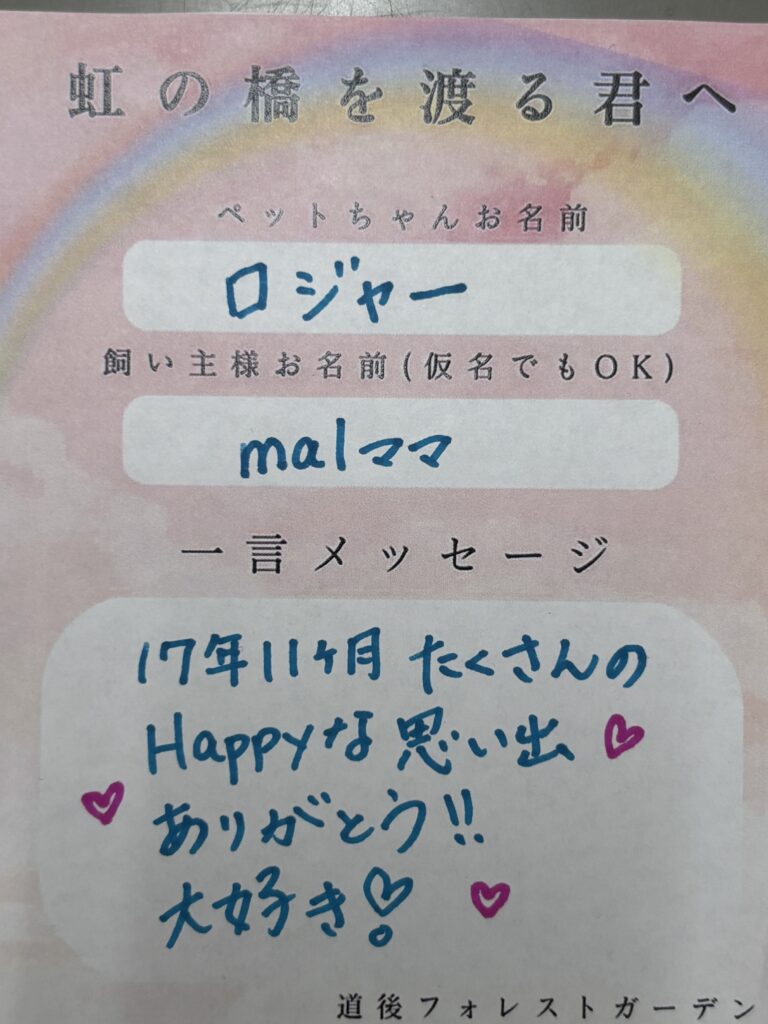 虹の橋を渡る君へ
ペットちゃんお名前
ロジャー
飼い主様お名前(仮名でもOK)
malママ
一言メッセージ
17年11ヶ月 たくさんの
Happyな思い出♡
♡ ありがとう!!
大好き! ♡
道後フォレストガーデン